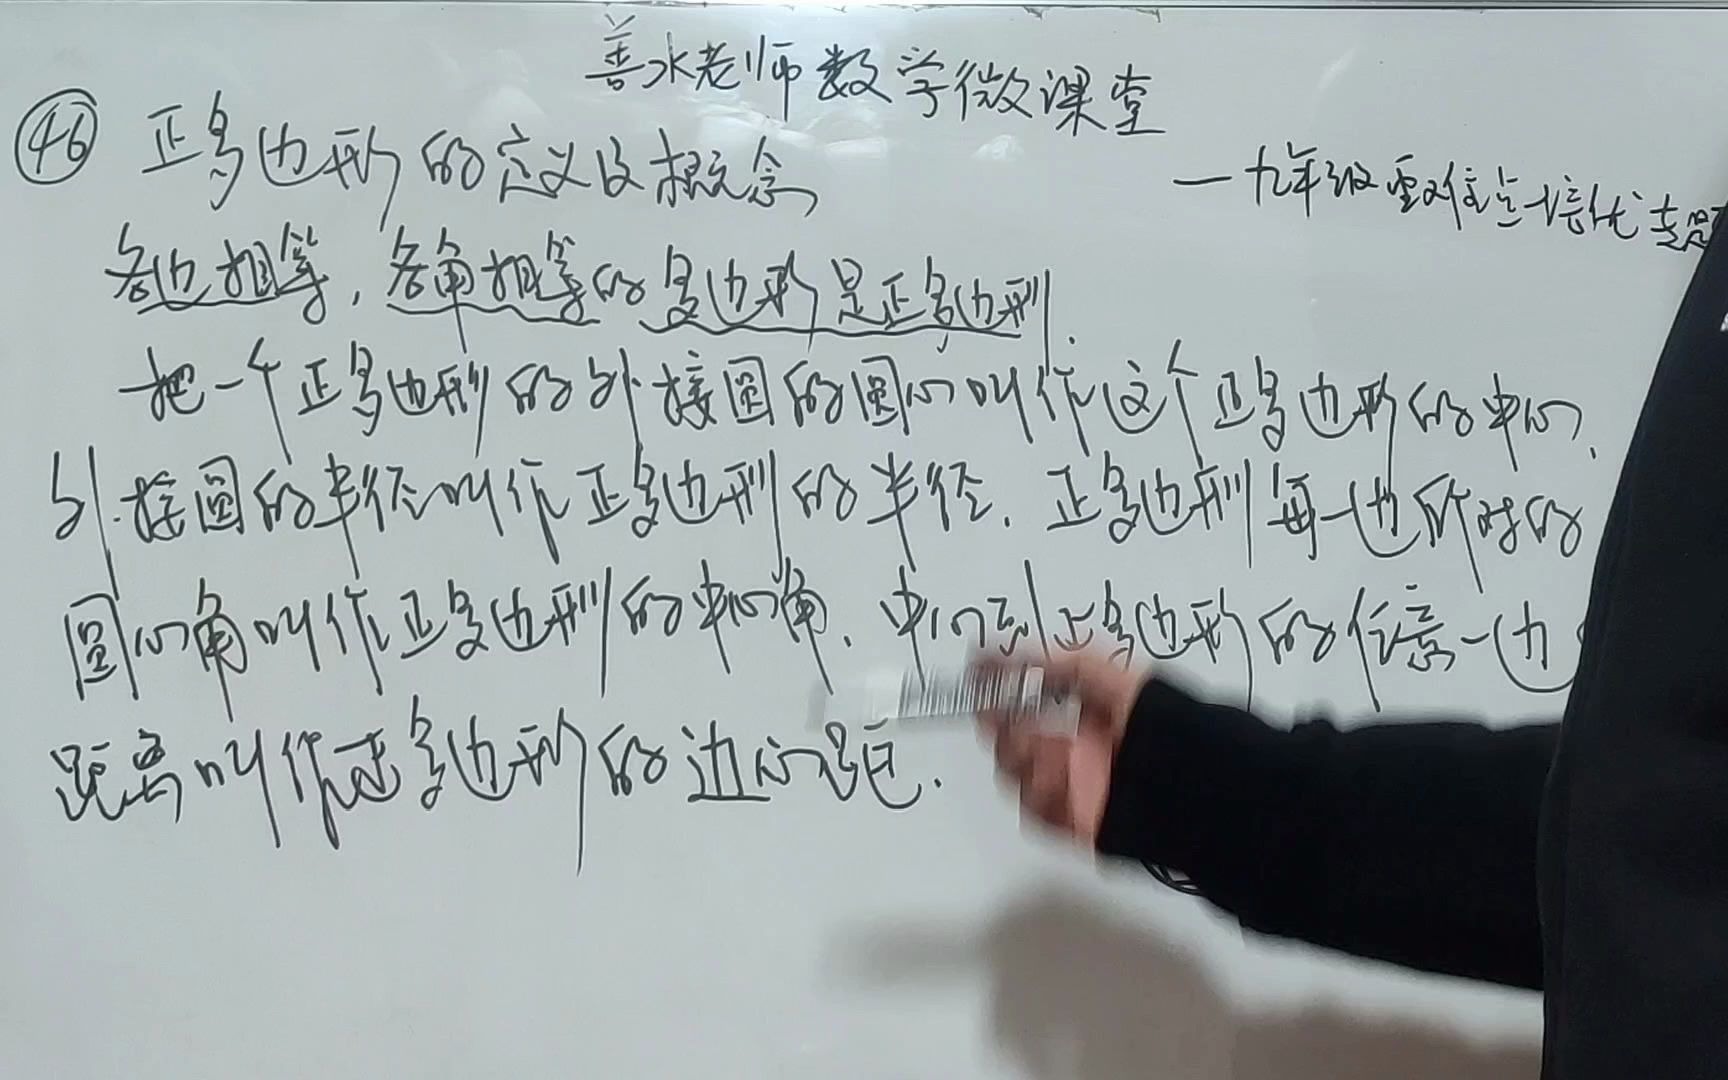 善水老师数学微课堂
㊻ 正多边形的定义及概念
—九年级重难点培优专题
各边相等,各角相等的多边形是正多边形.
把一个正多边形的外接圆的圆心叫作这个正多边形的中心.
外接圆的半径叫作正多边形的半径.正多边形每一边所对的
圆心角叫作正多边形的中心角.中心到正多边形的任意一边
距离叫作正多边形的边心距.